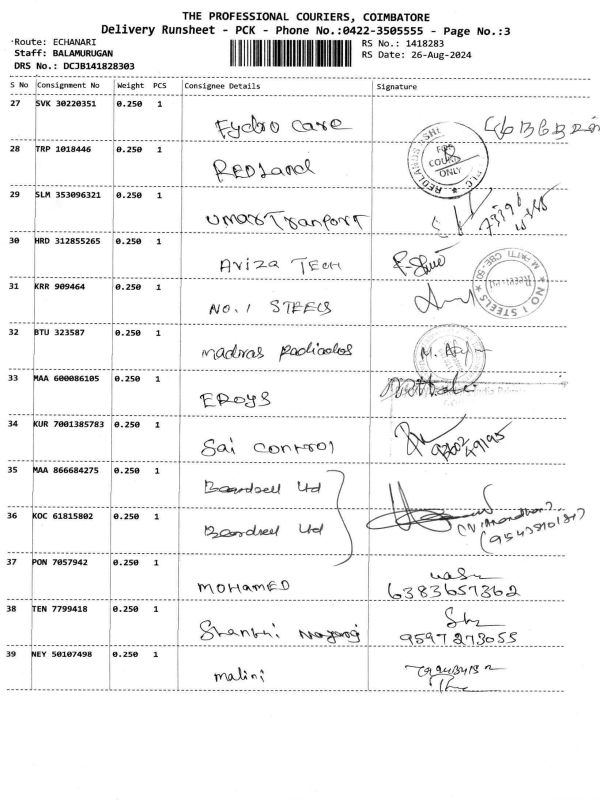 THE PROFESSIONAL COURIERS, COIMBATORE
Delivery Runsheet - PCK - Phone No.:0422-3505555 - Page No.:3
Route: ECHANARI
RS No.: 1418283
Staff: BALAMURUGAN
RS Date: 26-Aug-2024
DRS No.: DCJB141828303
S No Consignment No Weight PCS Consignee Details Signature
27 SVK 30220351 0.250 1
Fydro Care
28 TRP 1018446 0.250 1
REDLand
FOR COURIER ONLY
29 SLM 353096321 0.250 1
UMAR Tranport
30 HRD 312855265 0.250 1
Ariza TECH
31 KRR 909464 0.250 1
NO.1 STEELS
NO 1 STEELS
32 BTU 323587 0.250 1
madras
33 MAA 600086105 0.250 1
EROYS
34 KUR 7001385783 0.250 1
Sai Control
35 MAA 866684275 0.250 1
Beardsell Ltd
36 KOC 61815802 0.250 1
Beardsell Ltd
37 PON 7057942 0.250 1
MOHAMED
6383657362
38 TEN 7799418 0.250 1
Shanthi
9597273055
39 NEY 50107498 0.250 1
malini